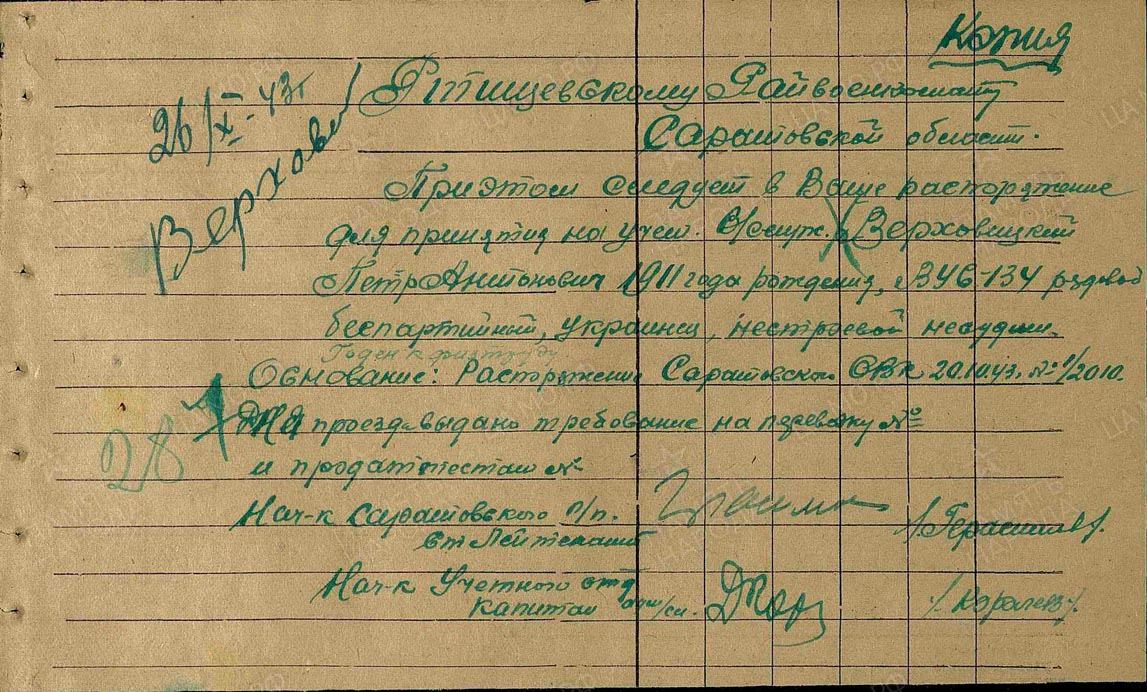 Копия
26/XI-43г
Верхови
Ртищевскому Райвоенкомату
Саратовской области.
При этом следует в Ваше распоряжение
для принятия на учет. В/служ. Верховицкий
Петр Антонович 1911 года рождения, ВУС-134 рядовой
беспартийный, украинец, нестроевой несудим.
Годен к физтруду.
Основание: Распоряжение Саратовского ОВК 20.10.43. №1/2010.
Для проезда выдано требование на перевозку №
и продаттестат №
28
Нач-к Саратовского п/п.
Ст Лейтенант /Герасимов/.
Нач-к Учетного отд
капитан адм/сл. /Королев/.